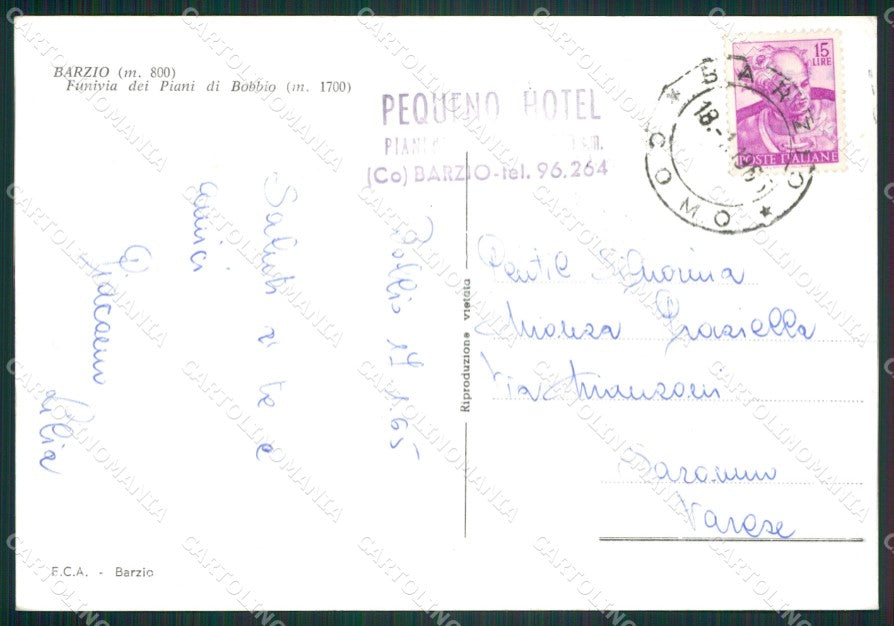 BARZIO (m. 800)
Funivia dei Piani di Bobbio (m. 1700)
PEQUENO HOTEL
PIANI
(Co) BARZIO-tel. 96.264
15
LIRE
POSTE ITALIANE
BARZIO
COMO
18.
Bobbio 17.1.65
Saluti a te e
amici
Lilia
Gentil Signorina
Graziella
Via Manzoni
Varese
Riproduzione vietata
E.C.A. - Barzio
CARTOLINOMANIA